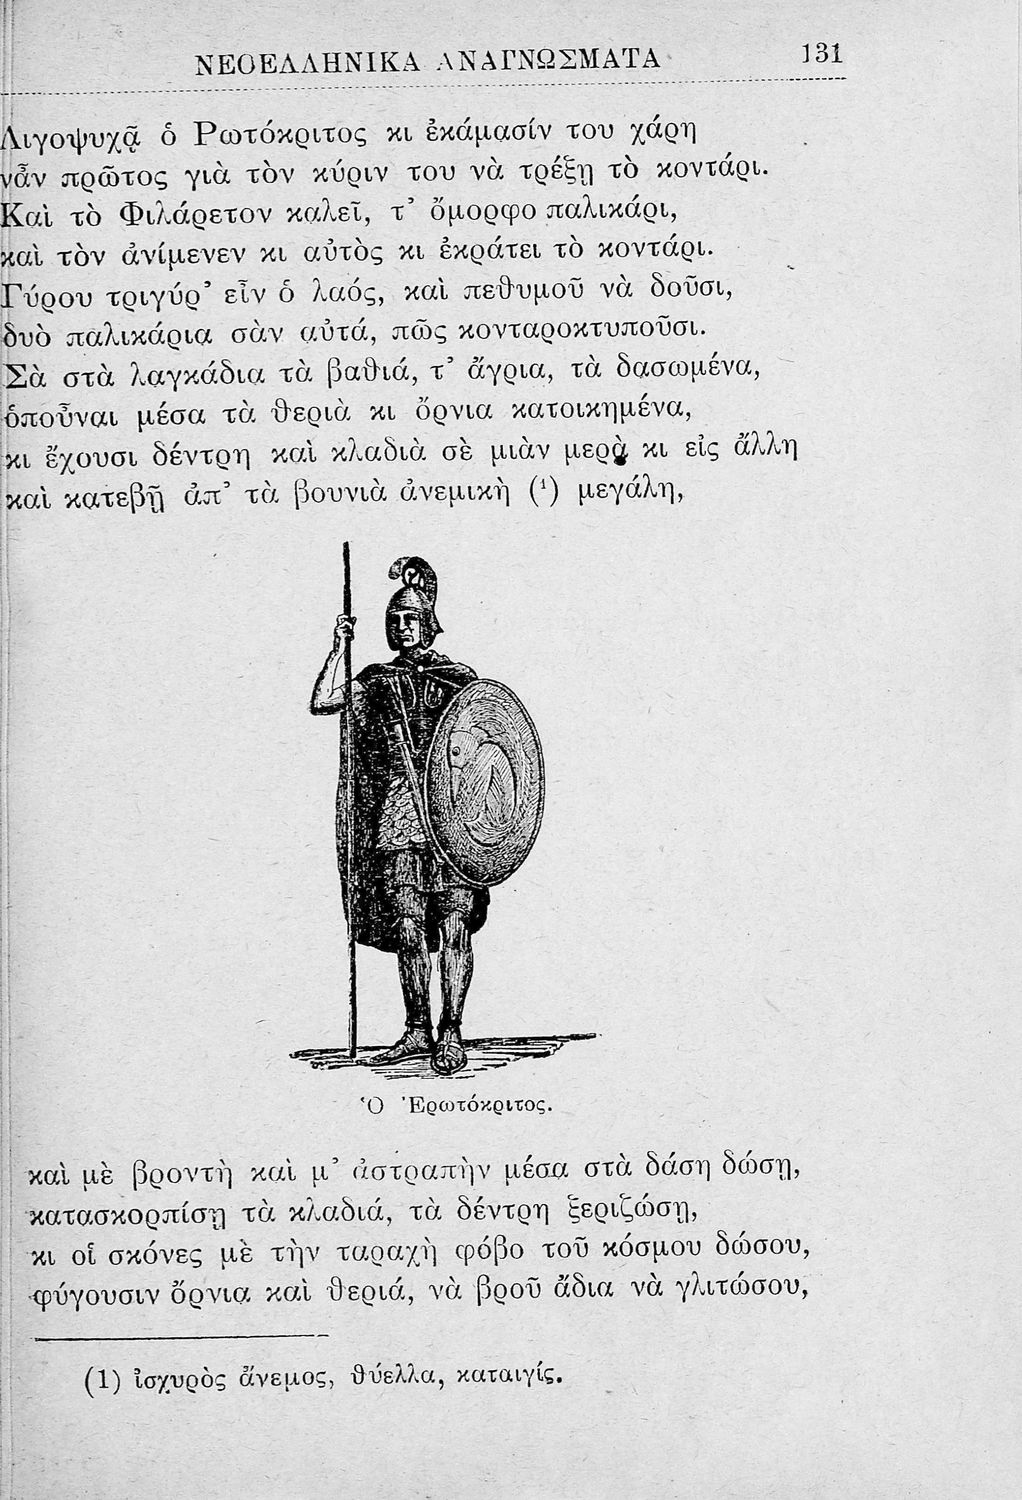 ΝΕΟΕΛΛΗΝΙΚΑ ΑΝΑΓΝΩΣΜΑΤΑ 131
Λιγοψυχᾷ ὁ Ρωτόκριτος κι ἐκάμασίν του χάρη
νἆν πρῶτος γιὰ τὸν κύριν του νὰ τρέξῃ τὸ κοντάρι.
Καὶ τὸ Φιλάρετον καλεῖ, τ' ὄμορφο παλικάρι,
καὶ τὸν ἀνίμενεν κι αὐτὸς κι ἐκράτει τὸ κοντάρι.
Γύρου τριγύρ' εἶν ὁ λαός, καὶ πεθυμοῦ νὰ δοῦσι,
δυὸ παλικάρια σὰν αὐτά, πῶς κονταροκτυποῦσι.
Σὰ στὰ λαγκάδια τὰ βαθιά, τ' ἄγρια, τὰ δασωμένα,
ὁποὖναι μέσα τὰ θεριὰ κι ὄρνια κατοικημένα,
κι ἔχουσι δέντρη καὶ κλαδιὰ σὲ μιὰν μερὰ κι εἰς ἄλλη
καὶ κατεβῇ ἀπ' τὰ βουνιὰ ἀνεμικὴ (¹) μεγάλη,
Ὁ Ἐρωτόκριτος.
καὶ μὲ βροντὴ καὶ μ' ἀστραπὴν μέσα στὰ δάση δώσῃ,
κατασκορπίσῃ τὰ κλαδιά, τὰ δέντρη ξεριζώσῃ,
κι οἱ σκόνες μὲ τὴν ταραχὴ φόβο τοῦ κόσμου δώσου,
φύγουσιν ὄρνια καὶ θεριά, νὰ βροῦ ἄδια νὰ γλιτώσου,
(1) ἰσχυρὸς ἄνεμος, θύελλα, καταιγίς.